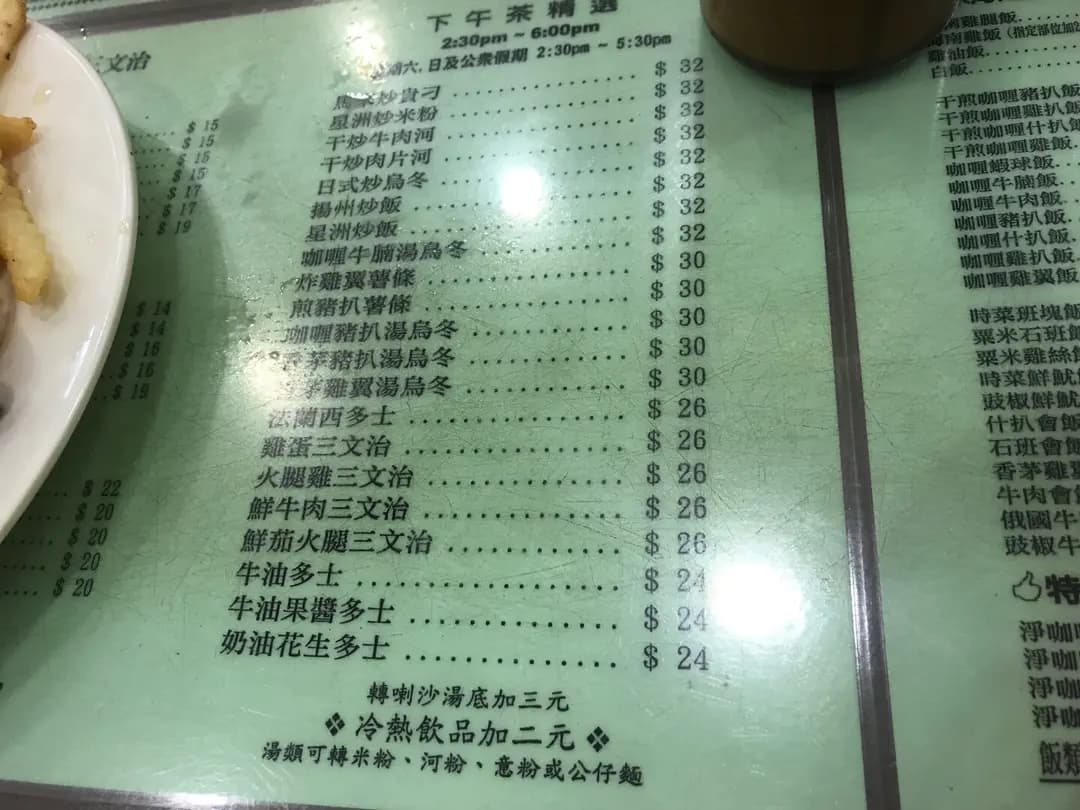 三文治
$ 15
$ 15
$ 15
$ 15
$ 17
$ 17
$ 19
$ 14
$ 14
$ 16
$ 16
$ 19
$ 22
$ 20
$ 20
$ 20
$ 20
下午茶精選
2:30pm ~ 6:00pm
六.日及公衆假期 2:30pm ~ 5:30pm
炒貴刁 $ 32
星洲炒米粉 $ 32
干炒牛肉河 $ 32
干炒肉片河 $ 32
日式炒烏冬 $ 32
揚州炒飯 $ 32
星洲炒飯 $ 32
咖喱牛腩湯烏冬 $ 32
炸雞翼薯條 $ 30
煎豬扒薯條 $ 30
咖喱豬扒湯烏冬 $ 30
香茅豬扒湯烏冬 $ 30
茅雞翼湯烏冬 $ 30
法蘭西多士 $ 26
雞蛋三文治 $ 26
火腿雞三文治 $ 26
鮮牛肉三文治 $ 26
鮮茄火腿三文治 $ 26
牛油多士 $ 24
牛油果醬多士 $ 24
奶油花生多士 $ 24
轉喇沙湯底加三元
❖ 冷熱飲品加二元 ❖
湯類可轉米粉、河粉、意粉或公仔麵
南雞腿飯
海南雞飯 (指定部位加2
雞油飯
白飯
干煎咖喱豬扒飯
干煎咖喱雞扒飯
干煎咖喱什扒飯
干煎咖喱雞飯
咖喱蝦球飯
咖喱牛腩飯
咖喱牛肉飯
咖喱豬扒飯
咖喱什扒飯
咖喱雞扒飯
咖喱雞翼飯
時菜班塊飯
粟米石班飯
粟米雞絲飯
時菜鮮魷
豉椒鮮魷
什扒會飯
石班會飯
香茅雞翼
牛肉會飯
俄國牛
豉椒牛
特
淨咖喱
淨咖
淨咖
淨咖
飯類